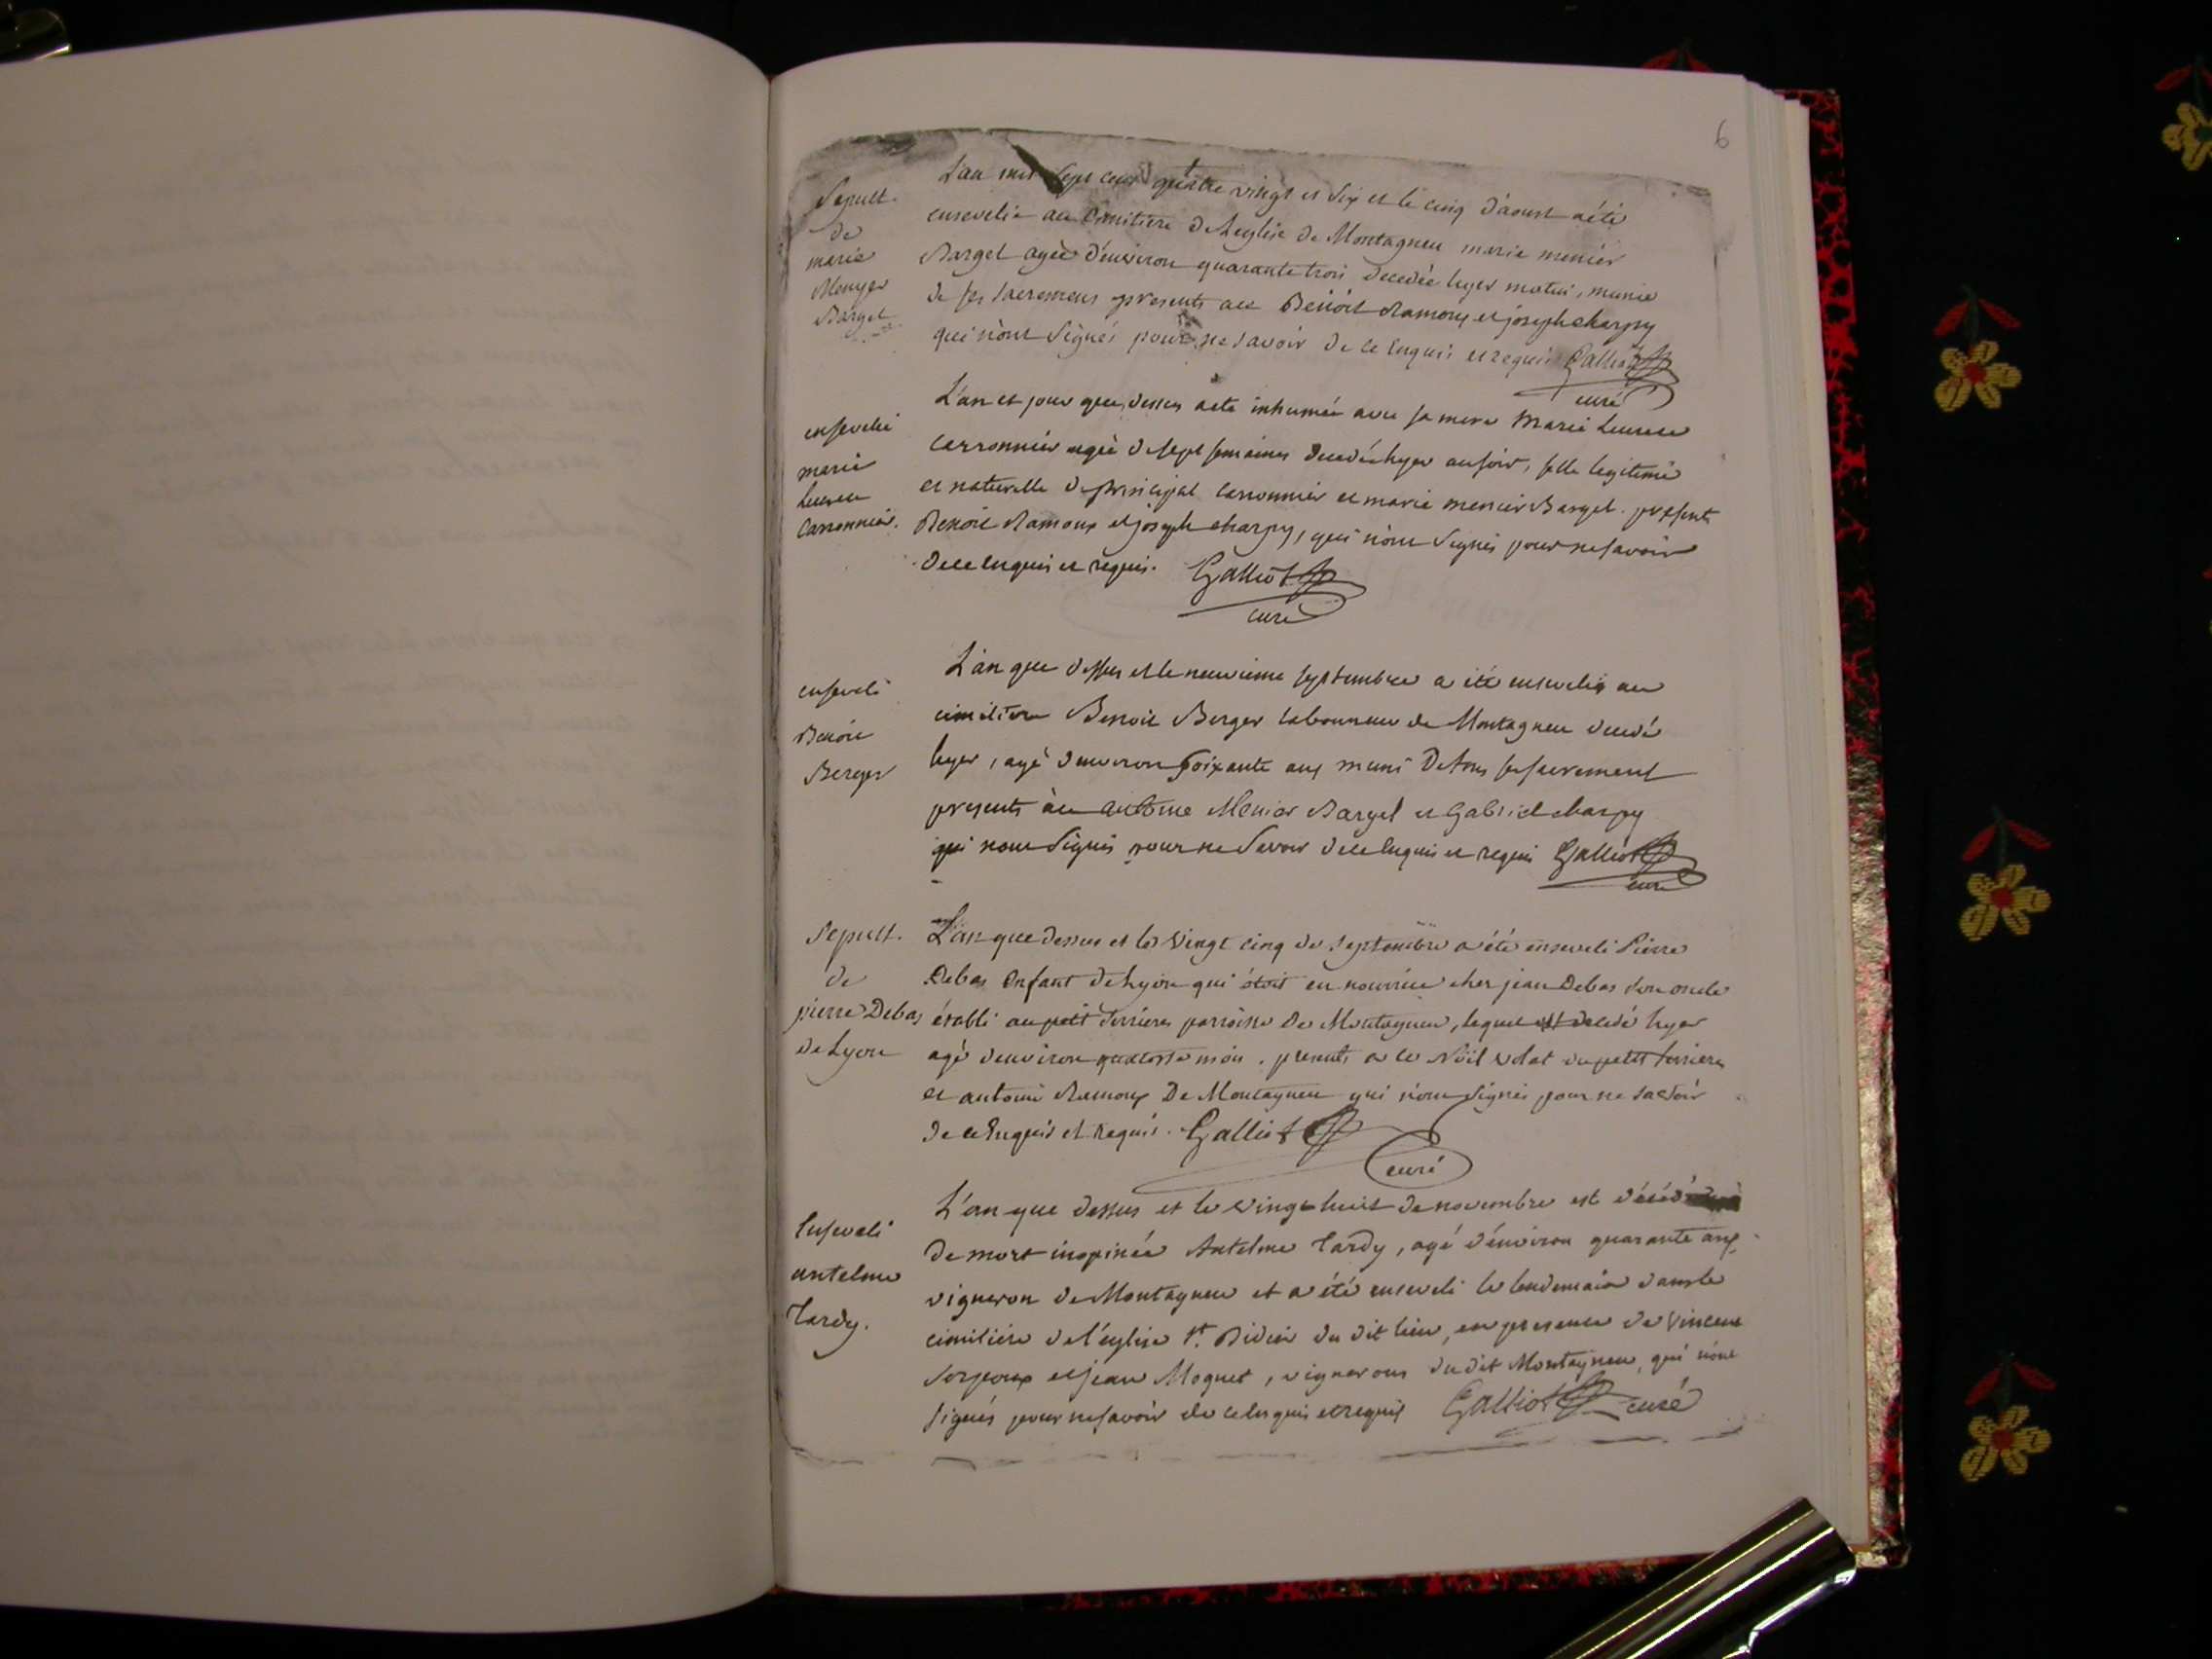 6
Sepult.
de
marie
Menyer
Bargel
L'an mil sept cent quatre vingt et six et le cinq d'aoust a été
ensevelie au Cimitiere de l'eglise de Montagneu marie meniér
Bargel agée d'environ quarante trois decedée hyer matin, munie
de ses sacremens presents a ce Benoit Ramoux et joseph charpy
qui n'ont signés pour ne savoir de ce Enquis et requis Galliot
curé
ensevelie
marie
Carronnier.
L'an et jour que dessus a ete inhumée avec sa mere Marie
Carronnier agée de sept semaines decedée hyer au soir, fille legitime
et naturelle de principal Carronnier et marie menier Bargel. presents
Benoit Ramoux et joseph charpy, qui n'ont signés pour ne savoir
de ce enquis et requis. Galliot
curé
enseveli
Benoit
Berger
L'an que dessus et le neuvieme septembre a été enseveli au
cimitiere Benoit Berger laboureur de Montagneu decedé
hyer, agé d'environ soixante ans muni de tous ses sacrements
presents à ce antoine Menier Bargel et Gabriel charpy
qui n'ont signés pour ne savoir de ce Enquis et requis Galliot
curé
Sepult.
de
pierre Debas
de Lyon
L'an que dessus et le vingt cinq de septembre a été enseveli Pierre
Debas Enfant de Lyon qui étoit en nourrice cher jean Debas son oncle
établi au petit Serrieres parroisse de Montagneu, lequel est decedé hyer
agé d'environ quatorse mois. presents a ce Noil volat du petit Serrieres
et antoine Ramoux De Montagneu qui n'ont signés pour ne savoir
de ce Enquis et Requis. Galliot
curé
Enseveli
antelme
Tardy.
L'an que dessus et le vingt huit de novembre est décédé
de mort inopinée Antelme Tardy, agé d'environ quarante ans,
vigneron de Montagneu et a été enseveli le lendemain dans le
cimitière de l'église St. Didier du dit lieu, en presence de Vincent
et jean Moguet, vignerons du dit Montagneu, qui n'ont
signés pour ne savoir de ce Enquis et requis Galliot curé